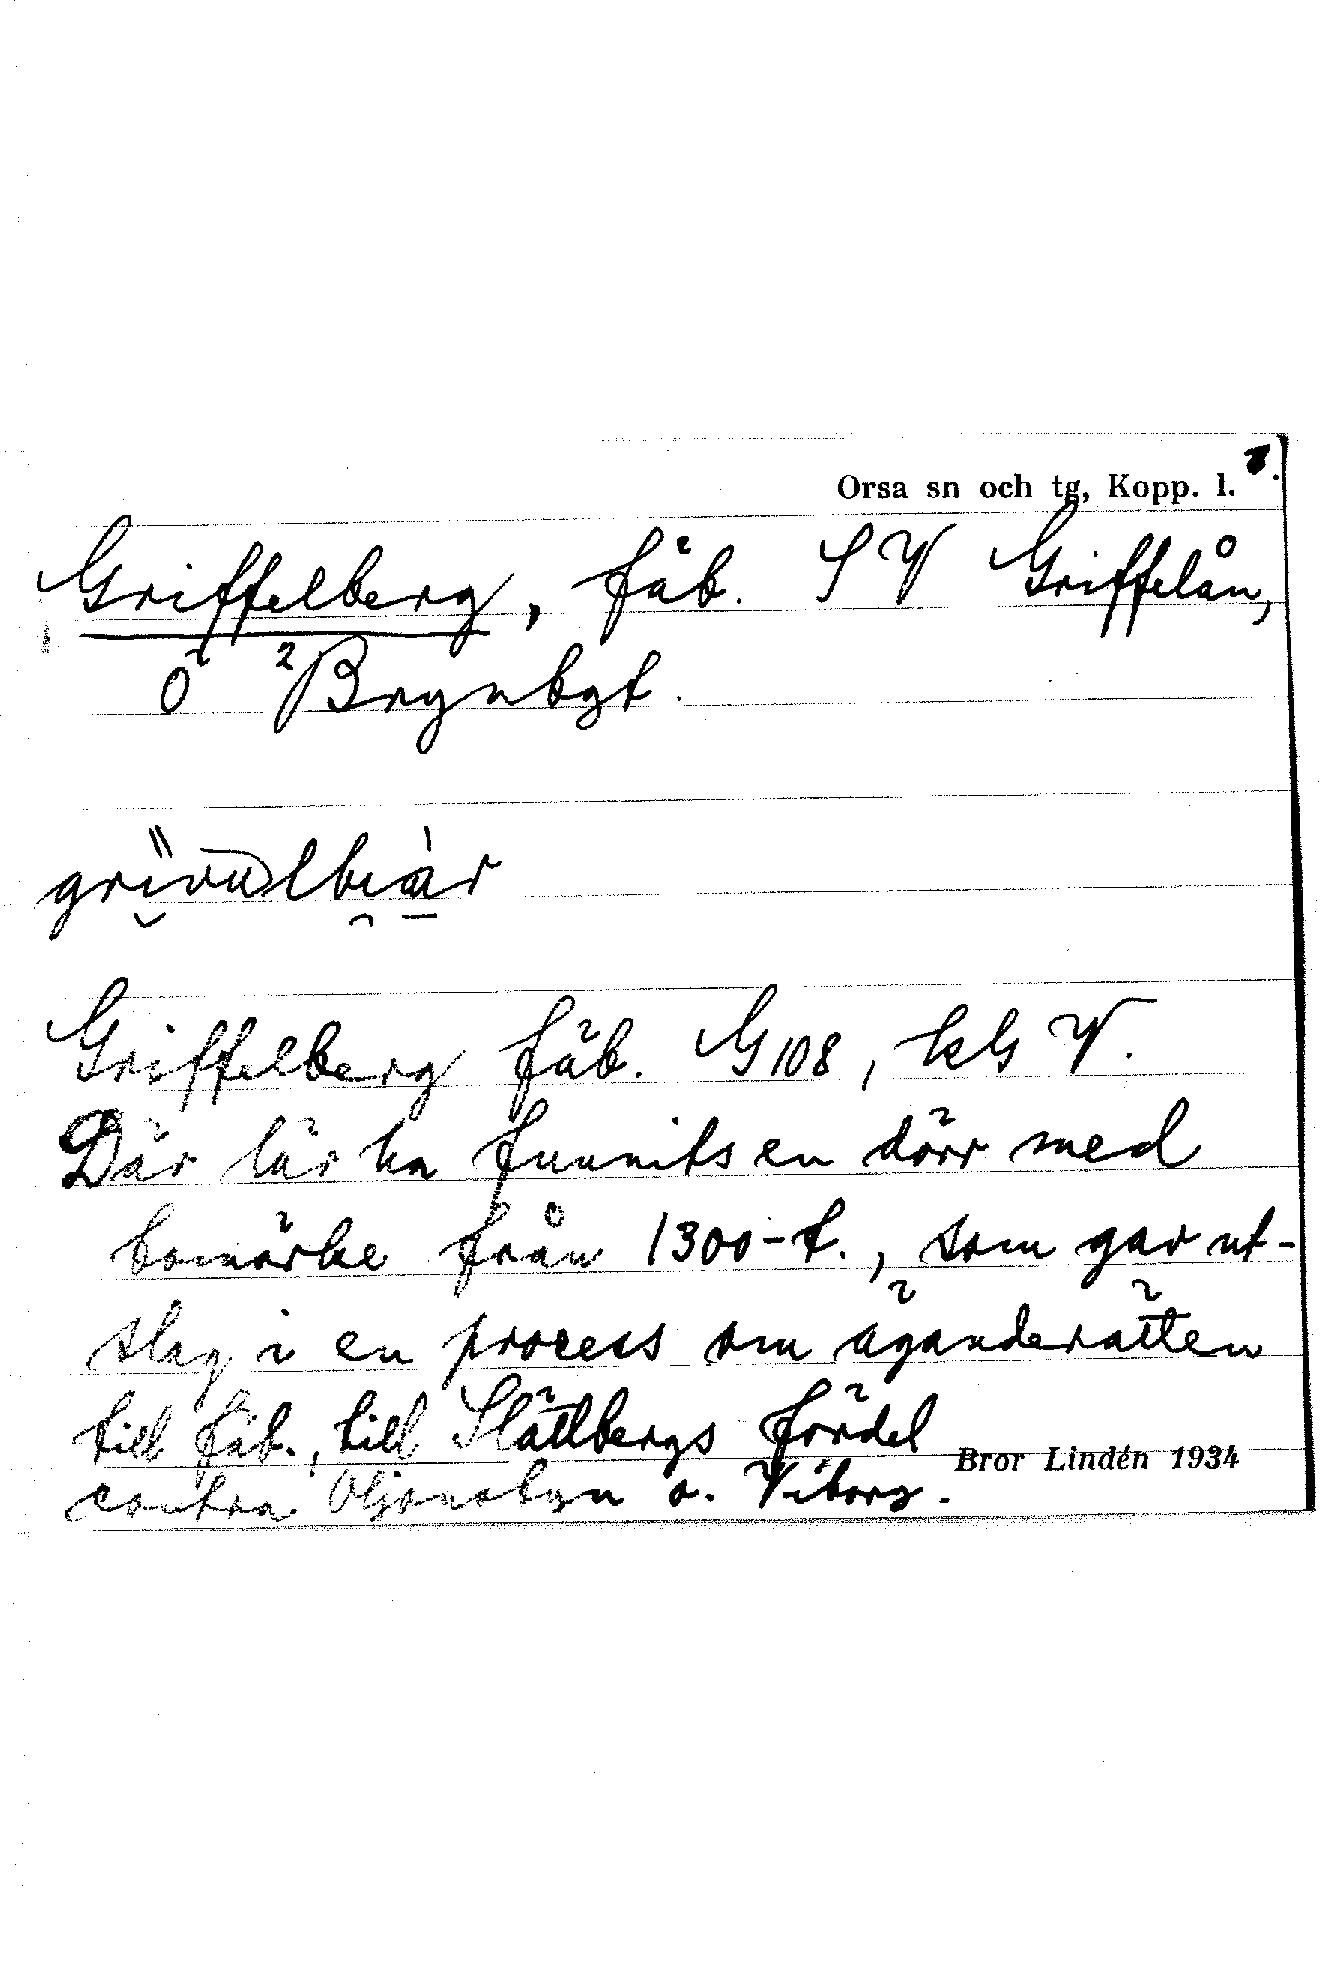 Orsa sn och tg, Kopp. l.
Griffelberg, fäb. SV Griffelån,
Ö Brynbgt.
Griffelberg fäb. G 108, kG V.
Där lär ha funnits en dörr med
bomärke från 1300-t., som gav ut-
slag i en process om äganderätten
till fäb., till Slättbergs fördel
contra Oljonsbyn o. Viborg.
Bror Lindén 1934